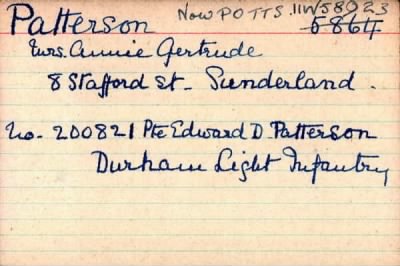 Patterson Now POTTS. 11W58023
5864
Mrs. Annie Gertrude
8 Stafford St. Sunderland.
No. 200821 Pte Edward D. Patterson
Durham Light Infantry